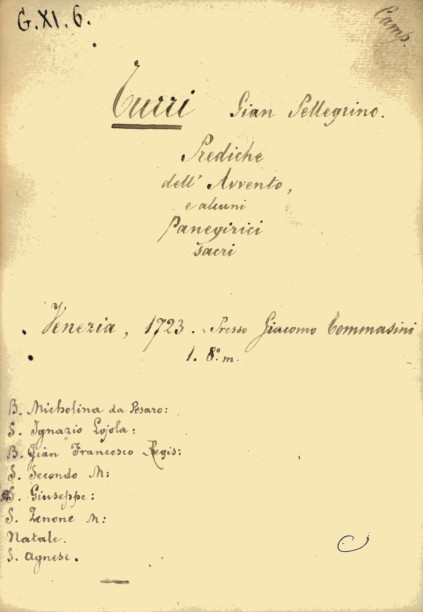 G. XI. 6.
Camp.
Turri Gian Pellegrino.
Prediche
dell' Avvento,
e alcuni
Panegirici
sacri
Venezia, 1723. Presso Giacomo Tommasini
1. 8º m.
B. Michelina da Pesaro:
S. Ignazio Lojola:
B. Gian Francesco Regis:
S. Secondo M:
S. Giuseppe:
S. Zenone M:
Natale.
S. Agnese.